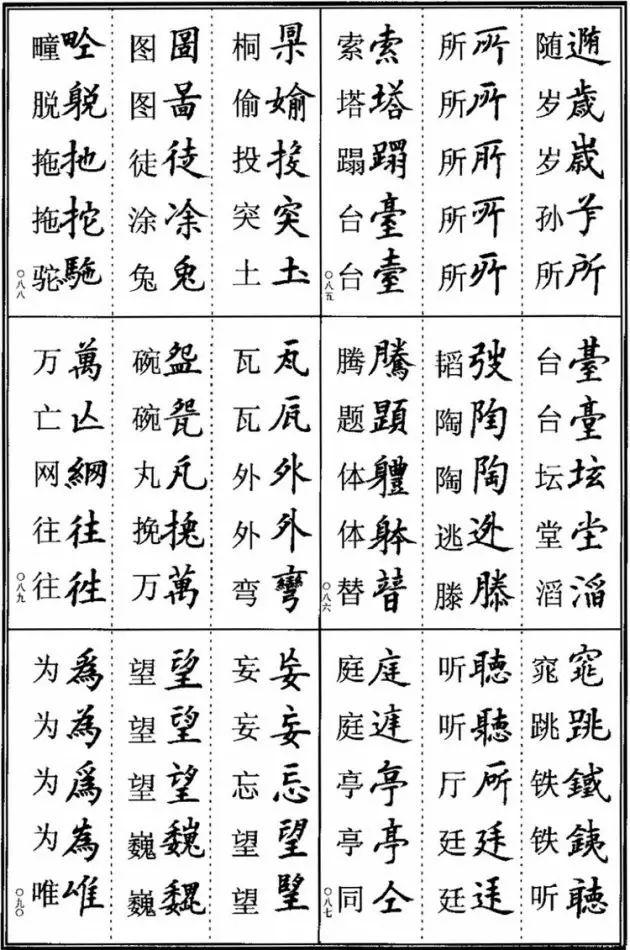 随 岁歳 岁歳 孙 所所
所所 所所 所所 所所 所所
索索 塔塔 蹋蹋 台臺 台臺
〇八五
台臺 台臺 坛坛 堂坣 滔滔
韬弢 陶陶 陶陶 逃迯 滕滕
腾騰 题題 体軆 体躰 替替
〇八六
窕窕 跳跳 铁鐵 铁銕 听聴
听聽 听聽 厅所 廷廷 廷
庭庭 庭 亭亭 亭亭 同仝
〇八七
桐 偷媮 投投 突突 土土
图圖 图啚 徒徒 涂凃 兔兔
疃 脱 拖扡 拖拕 驼駞
〇八八
瓦瓦 瓦瓦 外外 外外 弯彎
碗盌 碗㼝 丸 挽 万萬
万萬 亡亾 网網 往往 往徃
〇八九
妄妄 妄妄 忘忘 望望 望朢
望望 望望 望望 巍巍 巍巍
为為 为為 为爲 为為 唯唯
〇九〇